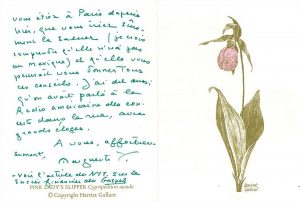 vous étiez à Paris depuis
hier, que vous iriez sûre-
ment la saluer (je crois
comprendre qu'elle n'ira pas
au Mexique) et qu'elle vous
pourrait vous donner tous
ces conseils. J'ai dit aussi
qu'on avait parlé à la
Radio américaine des con-
certs dans la rue, avec
grands éloges.
A vous, affectueu-
sement,
Marguerite
- voir l'article du NYT. sur le
succès financier des
PINK LADY'S SLIPPER Cypripedium acaule
© Copyright Harriet Gallert